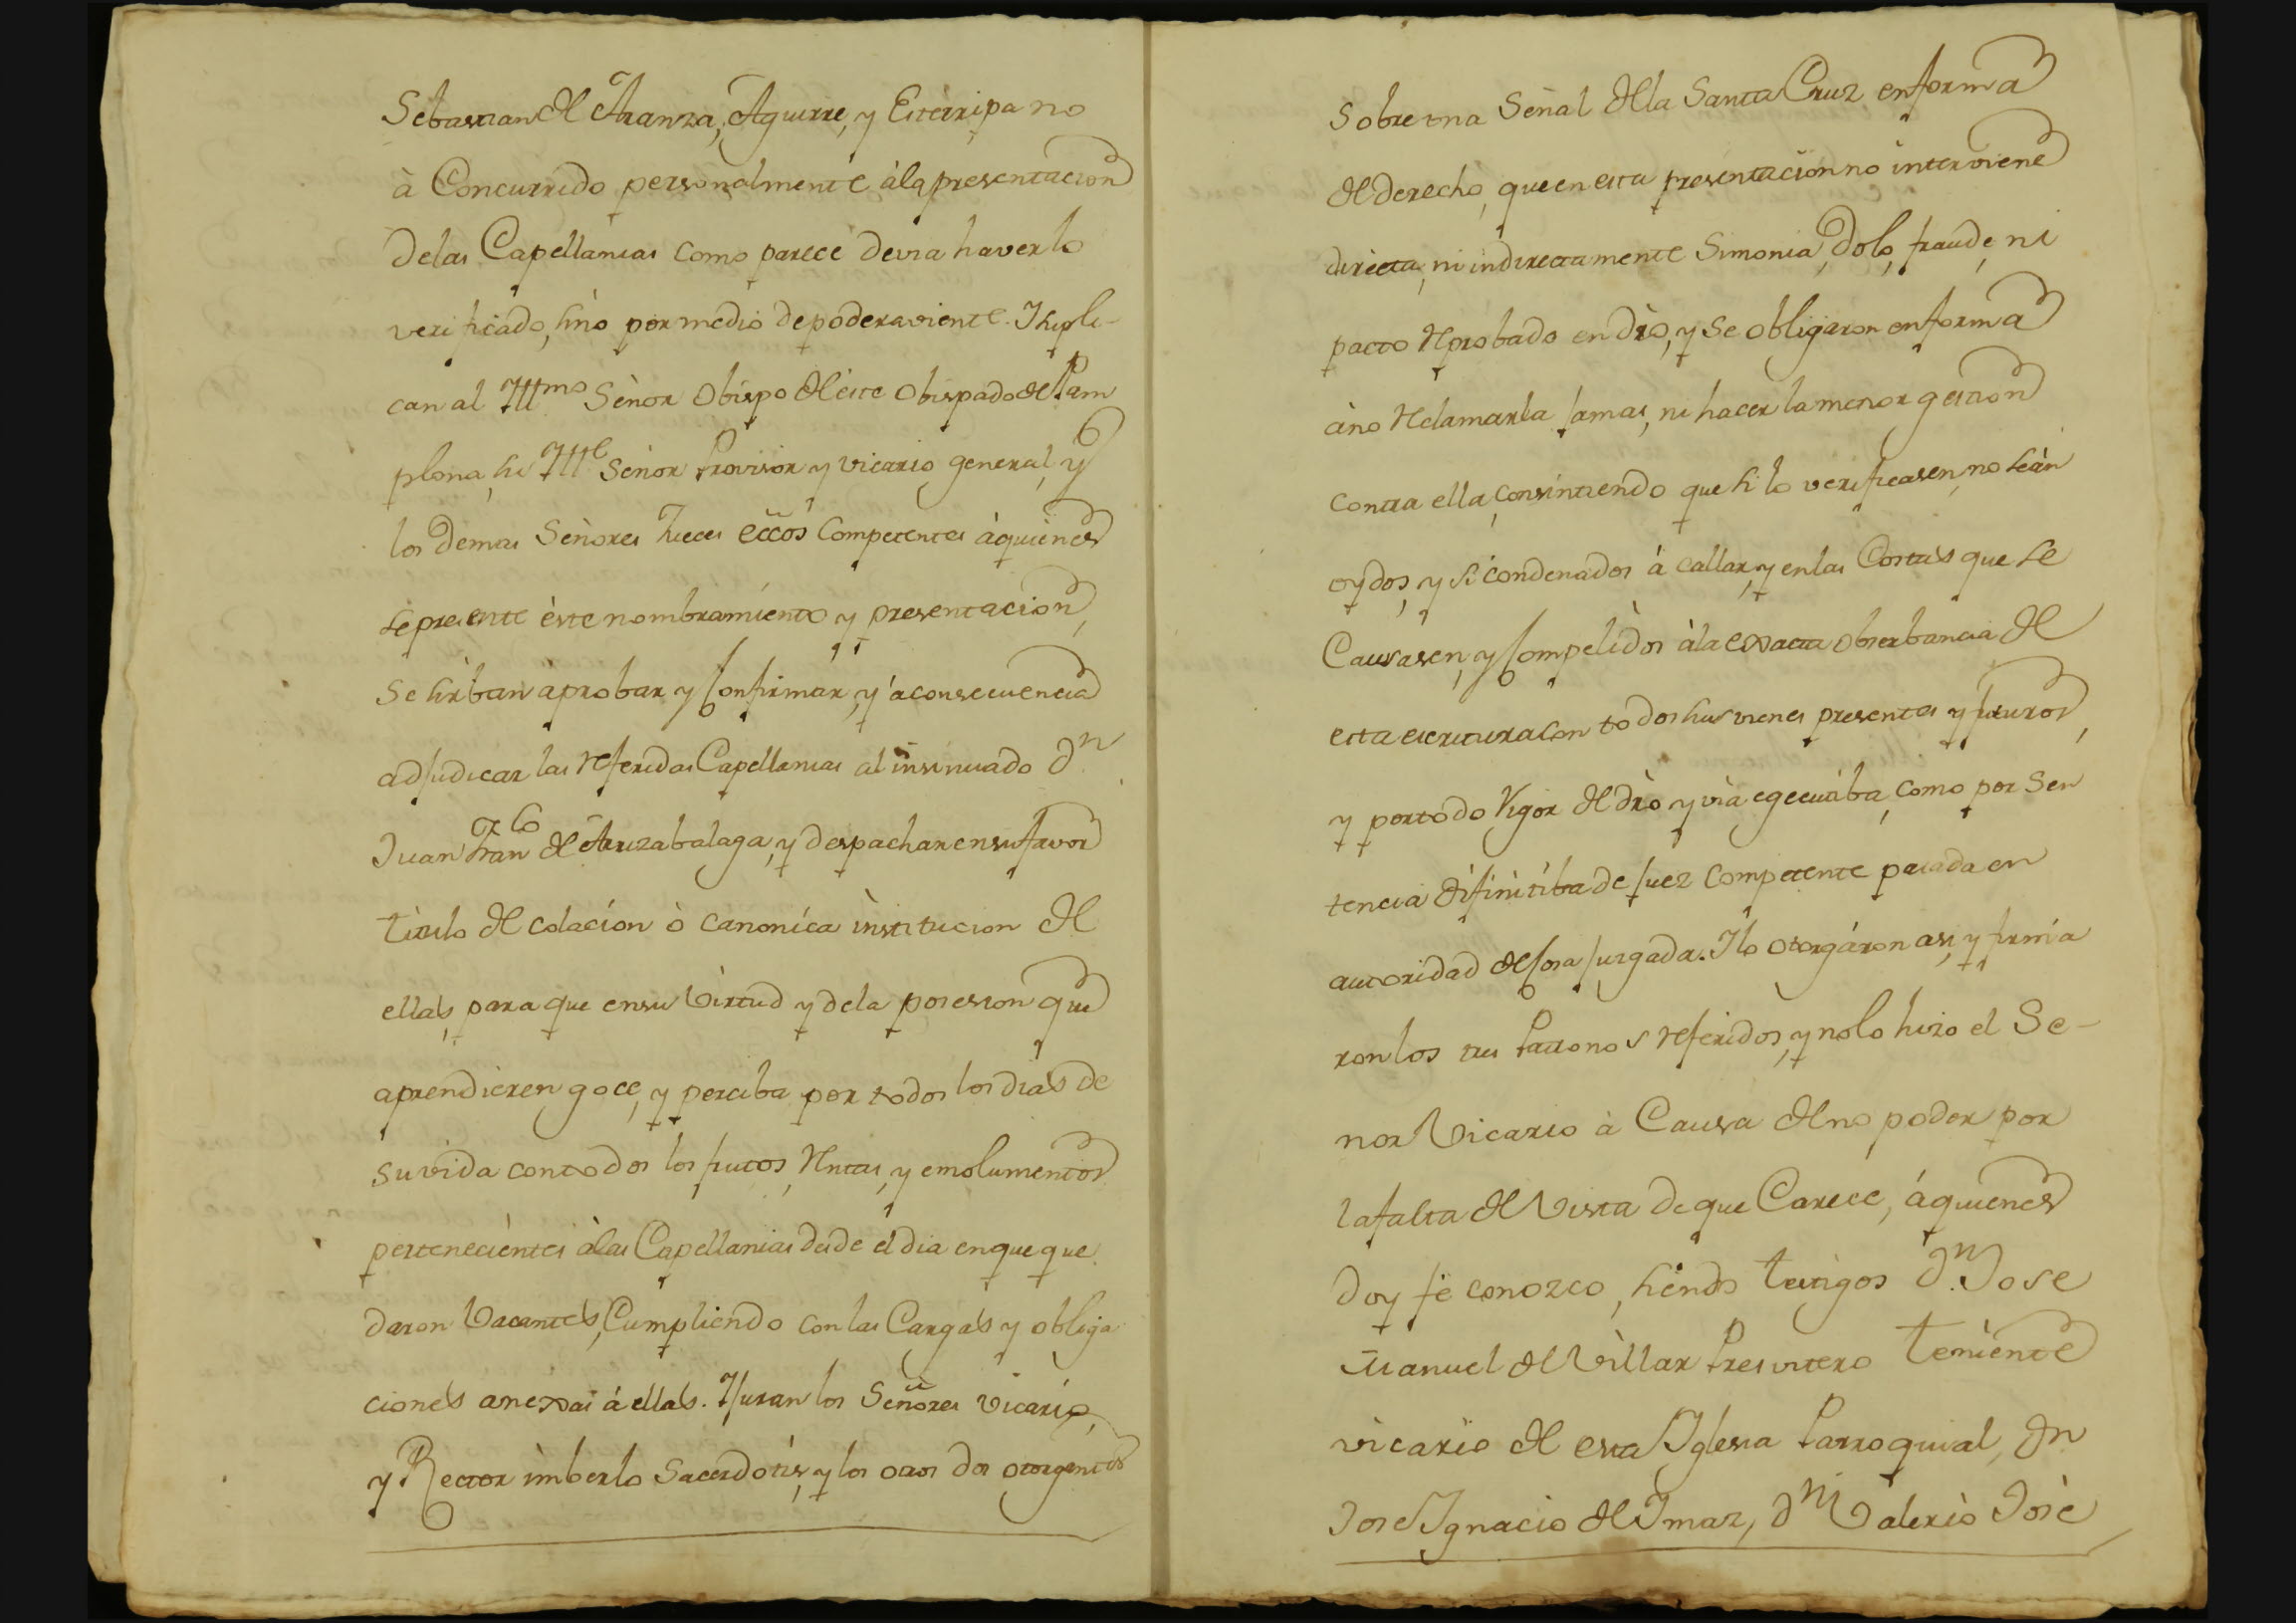 Sebastian de Aranza, Aguirre, y Esterripa no
à Concurrido personalmente àla presentacion
delas Capellanias como parece devia haverlo
verificado, sino por medio de poderaviente. Ysupli-
can al Yllmo Señor Obispo de èste Obispado de Pam
plona, su Ylle Señor Provisor y vicario general, y
los demas Señores Jueces eccos Competentes àquienes
se presente èste nombramiento y presentacion,
se sirban àprobar y Confirmar, y àconsecuencia
adjudicar las referidas Capellanias al insinuado Dn
Juan Franco de Aruzabalaga, y despachar ensu favor
titulo de colacion ò canonica institucion de
ellas, para que ensu virtud y dela posesion que
aprendieren goce, y perciba por todos los dias de
su vida contodos los frutos, rentas, y emolumentos
pertenecientes àlas Capellanias desde el dia enque que
daron Vacantes, Cumpliendo con las Cargas y obliga
ciones anexas á ellas. Y juran los Señores Vicario,
y Rector imberlo Sacerdotis, y los otros dos otorgentes
Sobre una Señal de la Santa Cruz enforma
de derecho, que en esta presentacion no interviene
directa, ni indirectamente Simonia, dolo, fraude, ni
pacto reprobado en dro, y se obligaron enforma
àno reclamarla jamas, ni hacer la menor gestion
contra ella, consintiendo que si lo verificasen, no seàn
oydos, y si condenados á callar, y enlas Costas que se
Causasen, y Compelidos àla exacta obserbancia de
esta escritura con todos sus vienes presentes y futuros,
y portodo Vigor de dro y via egecutiba, como por Sen
tencia difinitiba de juez Competente pasada en
autoridad de Cosa juzgada. Ylo otorgáron asi, y firma
ron los tres Patronos referidos, y nolo hizo el Se-
nor Vicario à Causa de no poder por
lafalta de Vista de que Carece, áquienes
doy fe conozco, siendo testigos Dn. Jose
Manuel de Villar Presvitero Teniente
vicario de esta Yglesia Parroquial, Dn
Jose Ygnacio de Ymaz, Dn Valerio Josè